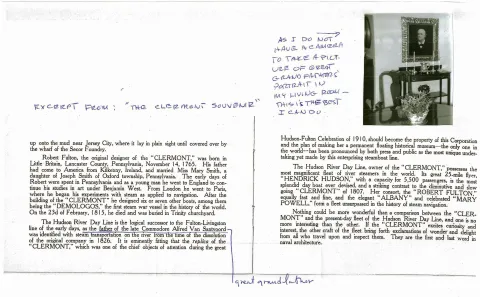 AS I DO NOT
HAVE A CAMERA
TO TAKE A PICT
URE OF GREAT
GRANDFATHERS'
PORTRAIT IN
MY LIVING ROOM —
THIS IS THE BEST
I CAN DO
EXCERPT FROM: "THE CLERMONT SOUVENIR"
up onto the mud near Jersey City, where it lay in plain sight until covered over by
the wharf of the Secor Foundry.
Robert Fulton, the original designer of the "CLERMONT," was born in
Little Britain, Lancaster County, Pennsylvania, November 14, 1765. His father
had come to America from Kilkenny, Ireland, and married Miss Mary Smith, a
daughter of Joseph Smith of Oxford township, Pennsylvania. The early days of
Robert were spent in Pennsylvania and as a young man he went to England to con-
tinue his studies in art under Benjamin West. From London he went to Paris,
where he began his experiments with steam as applied to navigation. After the
building of the "CLERMONT" he designed six or seven other boats, among them
being the "DEMOLOGOS," the first steam war vessel in the history of the world.
On the 23d of February, 1815, he died and was buried in Trinity churchyard.
The Hudson River Day Line is the logical successor to the Fulton-Livingston
line of the early days, as the father of the late Commodore Alfred Van Santvoord
was identified with steam transportation on the river from the time of the dissolution
of the original company in 1826. It is eminently fitting that the replica of the
"CLERMONT," which was one of the chief objects of attention during the great
great grandfather
Hudson-Fulton Celebration of 1910, should become the property of this Corporation
and the plan of making her a permanent floating historical museum—the only one in
the world—has been pronounced by both press and public as the most unique under-
taking yet made by this enterprising steamboat line.
The Hudson River Day Line, owner of the "CLERMONT," possesses the
most magnificent fleet of river steamers in the world. Its great 23-mile flyer,
"HENDRICK HUDSON," with a capacity for 5,500 passengers, is the most
splendid day boat ever devised, and a striking contrast to the diminutive and slow
going "CLERMONT" of 1807. Her consort, the "ROBERT FULTON,"
equally fast and fine, and the elegant "ALBANY" and celebrated "MARY
POWELL," form a fleet unsurpassed in the history of steam navigation.
Nothing could be more wonderful than a comparison between the "CLER-
MONT" and the present-day fleet of the Hudson River Day Line, and one is no
more interesting than the other. If the "CLERMONT" excites curiosity and
interest, the other craft of the fleet bring forth exclamations of wonder and delight
from all who travel upon and inspect them. They are the first and last word in
naval architecture.